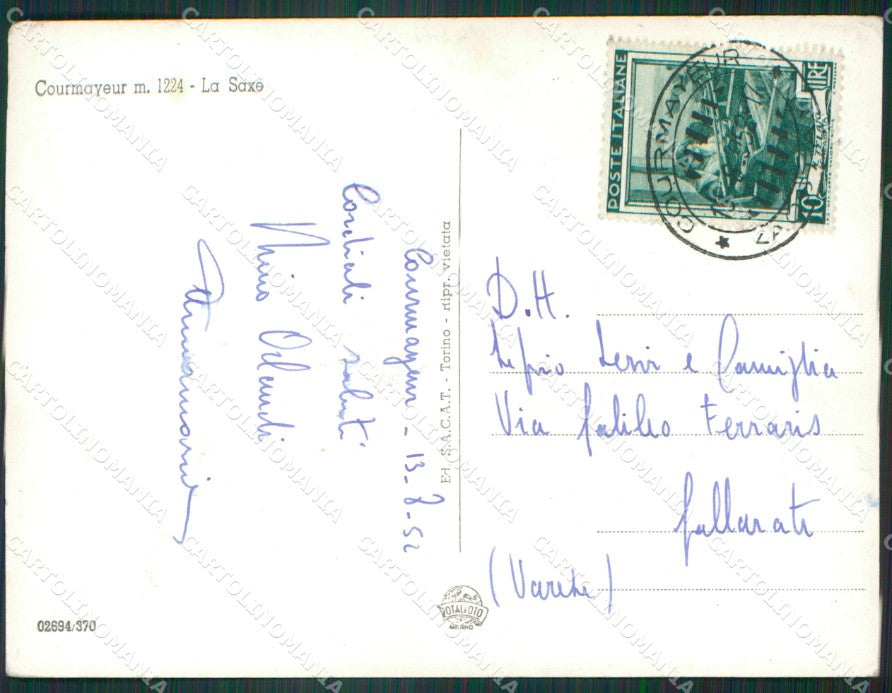 Courmayeur m. 1224 - La Saxe
POSTE ITALIANE
LIRE
10
COURMAYEUR
Courmayeur - 13-8-52
Cordiali saluti
Nino Orlandi
Annamaria
Ed. S.A.C.A.T. - Torino - ripr. vietata
D.H.
e Famiglia
Via Galileo Ferraris
Gallarate
(Varese)
02694/370
ROTALFOTO
MILANO
CARTOLINOMANIA